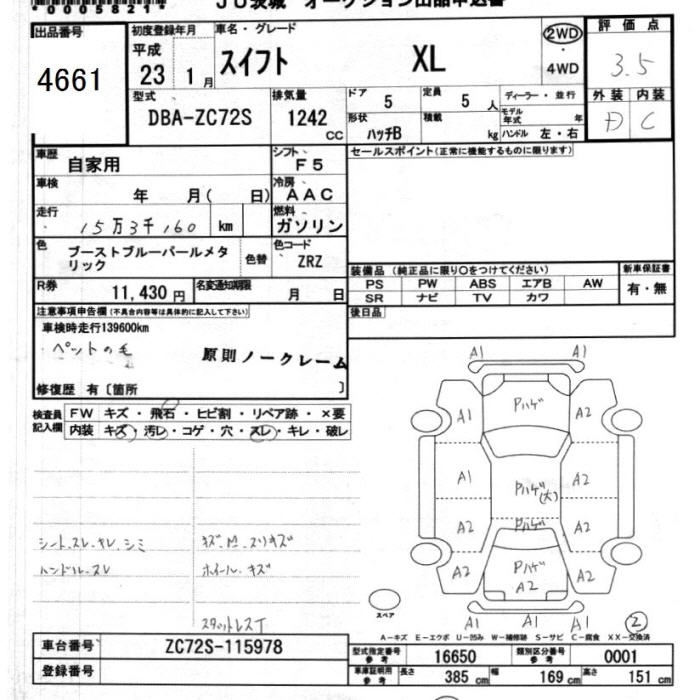 00058210
JU茨城 オークション出品申込書
出品番号
4661
初度登録年月
平成
23 1月
車名・グレード
スイフト XL
2WD
・
4WD
評価点
3.5
外装 内装
D C
型式
DBA-ZC72S
排気量
1242 CC
ドア 5
定員 5人
ディーラー・並行
モデル年式 年
形状 ハッチB
積載 kg
ハンドル 左・右
車歴 自家用
シフト F5
車検 年 月( 日)
冷房 AAC
走行 15万3千160 km
燃料 ガソリン
色 ブーストブルーパールメタリック
色替
色コード ZRZ
R券 11,430円
名変通知期限 月 日
セールスポイント(正常に機能するものに限ります)
装備品(純正品に限り○をつけてください)
PS PW ABS エアB AW
SR ナビ TV カワ
新車保証書
有・無
後日品
注意事項申告欄(不具合内容等は具体的に記入して下さい)
車検時走行139600km
ペットの毛
原則ノークレーム
修復歴 有〔箇所 〕
検査員記入欄
FW キズ・飛石・ヒビ割・リペア跡・×要
内装 キズ・汚レ・コゲ・穴・スレ・キレ・破レ
シート.スレ.キレ.シミ
ハンドル.スレ
ホイール.キズ
スタットレスT
A1 A1
A1 Pハゲ A2
A1 Pハゲ(大) A2
A2 Pハゲ A2
A2 Pハゲ A2 A2
A1 A1 A1
スペア
2
A−キズ E−エクボ U−凹み W−補修跡 S−サビ C−腐食 XX−交換済
車台番号 ZC72S-115978
登録番号
型式指定番号参考 16650
類別区分番号参考 0001
車庫証明用参考 長さ 385 cm 幅 169 cm 高さ 151 cm